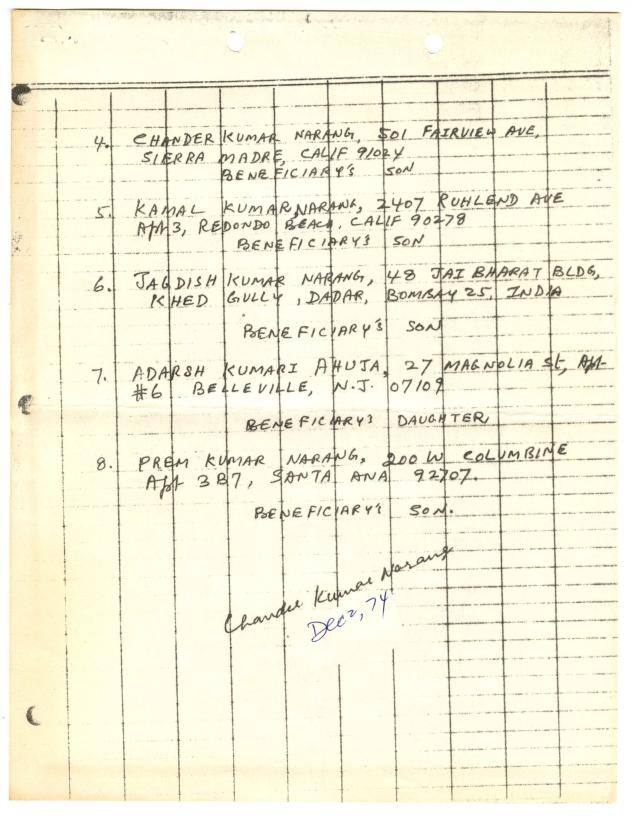 4. CHANDER KUMAR NARANG, 501 FAIRVIEW AVE,
SIERRA MADRE, CALIF 91024
BENEFICIARY'S SON
5. KAMAL KUMAR NARANG, 2407 RUHLEND AVE
Apt 3, REDONDO BEACH, CALIF 90278
BENEFICIARY'S SON
6. JAGDISH KUMAR NARANG, 48 JAI BHARAT BLDG,
KHED GULLY, DADAR, BOMBAY 25, INDIA
BENEFICIARY'S SON
7. ADARSH KUMARI AHUJA, 27 MAGNOLIA St, Apt
#6 BELLEVILLE, N.J. 07109
BENEFICIARY'S DAUGHTER
8. PREM KUMAR NARANG, 200 W COLUMBINE
Apt 3B7, SANTA ANA 92707.
BENEFICIARY'S SON.
Chander Kumar Narang
Dec 2, 74